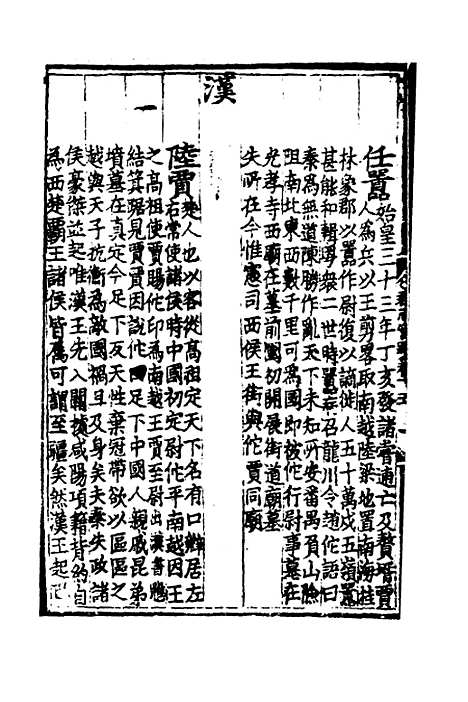 任囂始皇三十三年丁亥發諸嘗逋亡及贅壻賈
人為兵以王剪畧取南越陸梁地置南海桂
林象郡以囂作尉復以謫徙人五十萬戍五嶺囂
甚能和輯粵衆二世時囂召龍川令趙佗語曰
秦為無道陳勝作亂天下未知所安番禺負山險
阻南北東西數千里可為國即被佗行尉事墓在
光孝寺西廟在墓前闤初開展街道廟墓
失所在今惟憲司西侯王街與佗賈同廟
漢
陸賈楚人也以客從高祖定天下名有口辯居左
右常使諸侯時中國初定尉佗平南越因王
之高祖使賈賜佗印為南越王賈至尉佗魋
結箕踞見賈賈因說佗曰足下中國人親戚昆弟
墳墓在真定今足下反天性棄冠帶欲以區區之
越與天子抗衡為敵國禍且及身矣夫秦失政諸
侯豪傑並起唯漢王先入關據咸陽項籍背約自
為西楚霸王諸侯皆屬可謂至彊矣然漢王起巴